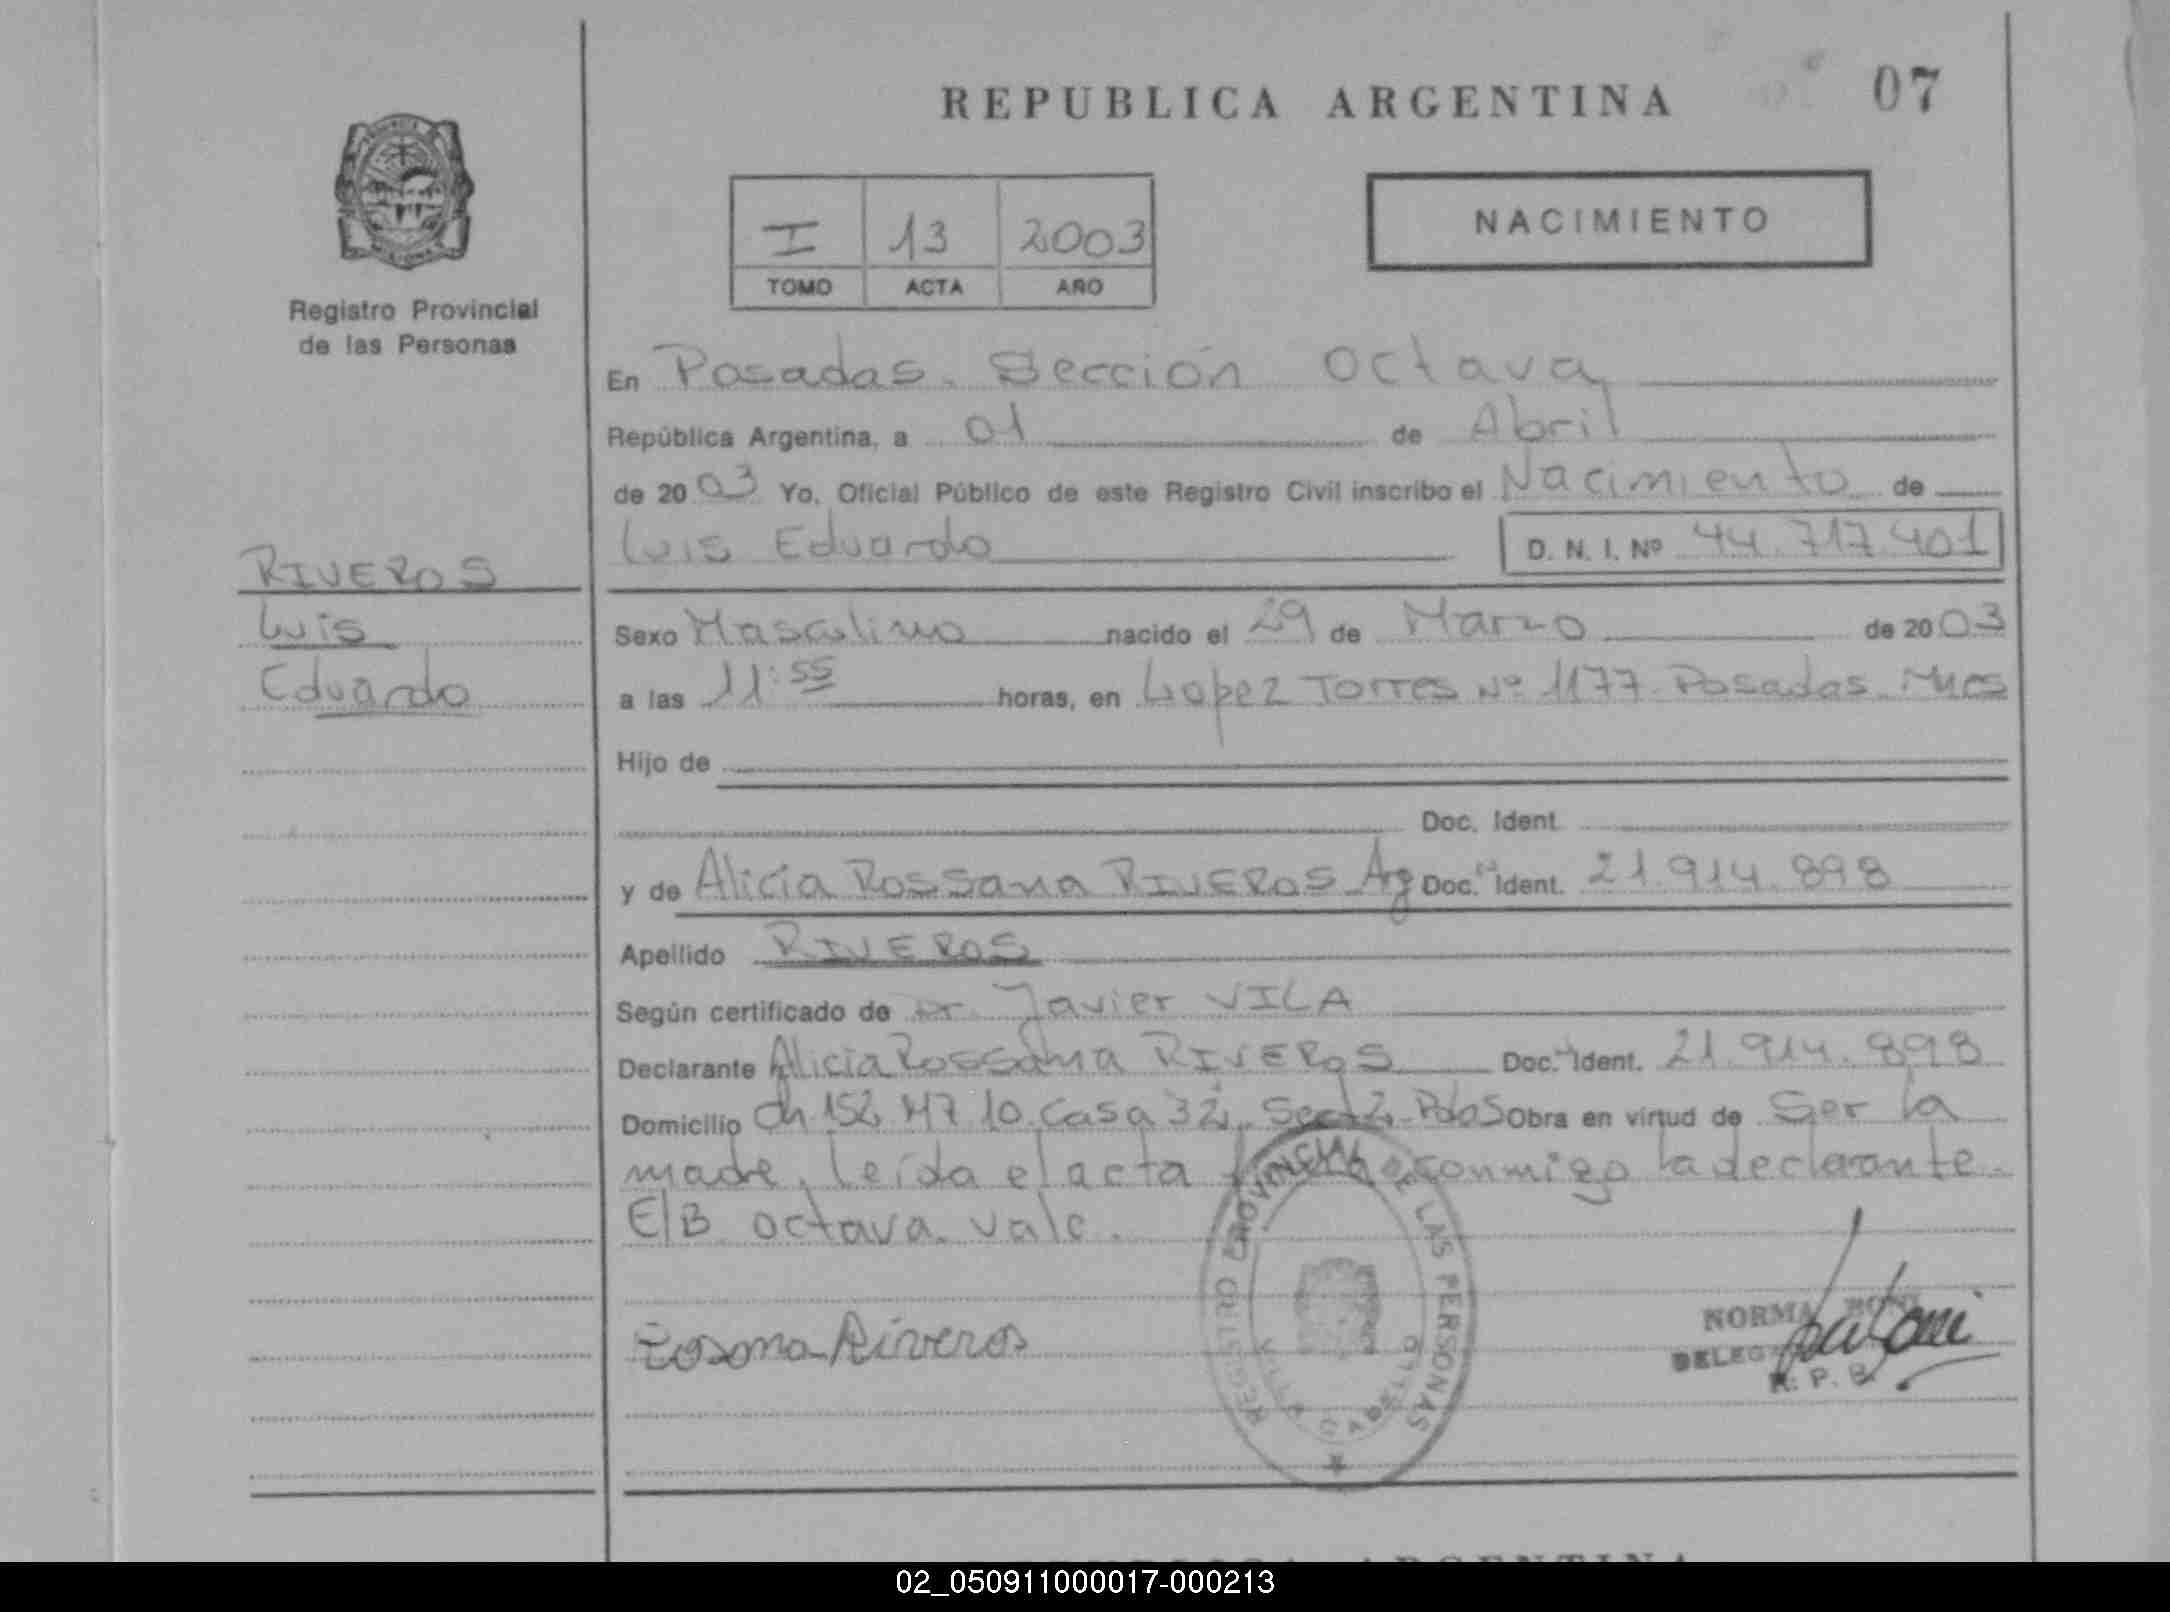 REPUBLICA ARGENTINA
07
I 13 2003
TOMO ACTA AÑO
NACIMIENTO
Registro Provincial
de las Personas
En Posadas. Sección Octava
República Argentina, a 01 de Abril
de 2003 Yo, Oficial Público de este Registro Civil inscribo el Nacimiento de
Luis Eduardo D. N. I. Nº 44.717.401
RIVEROS
Luis
Eduardo
Sexo Masculino nacido el 29 de Marzo de 2003
a las 11:55 horas, en Lopez Torres Nº 1177 Posadas Mnes
Hijo de
Doc. Ident.
y de Alicia Rossana RIVEROS Arg Doc. Ident. 21.914.898
Apellido RIVEROS
Según certificado de Dr. Javier VILA
Declarante Alicia Rossana RIVEROS Doc. Ident. 21.914.898
Domicilio Ch 152 Mz 10 Casa 32 Pdas Obra en virtud de Ser la
madre, leída el acta conmigo la declarante.
E/B octava. vale.
Rosana Riveros
REGISTRO PROVINCIAL DE LAS PERSONAS
VILLA CABELLO
NORMA
DELEG
R. P. B.
REPUBLICA ARGENTINA
02_050911000017-000213